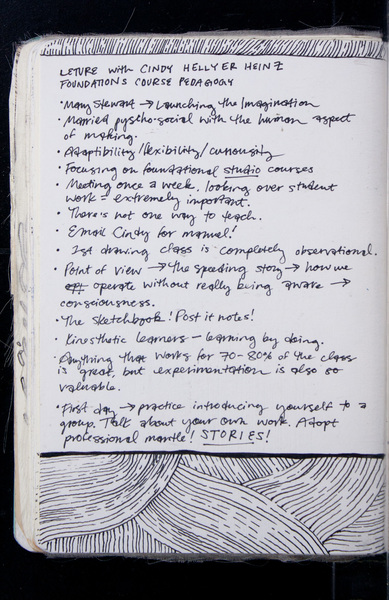 LETURE with CINDY HELLYER HEINZ
FOUNDATIONS COURSE PEDAGOGY
• Mary Stewart → Launching the Imagination
• Married pyscho-social with the human aspect
of making.
• Adaptibility/flexibility/curiousity
• Focusing on foundational studio courses
• Meeting once a week. looking over student
work = extremely important.
• There's not one way to teach.
• Email Cindy for manual!
• 1st drawing class is completely observational.
• Point of view → the speeding story → how we
operate without really being aware →
consciousness.
• The sketchbook! Post it notes!
• Kinesthetic learners - learning by doing.
• Anything that works for 70-80% of the class
is great, but experimentation is also so
valuable.
• First day → practice introducing yourself to a
group. Talk about your own work. Adopt
professional mantle! STORIES!